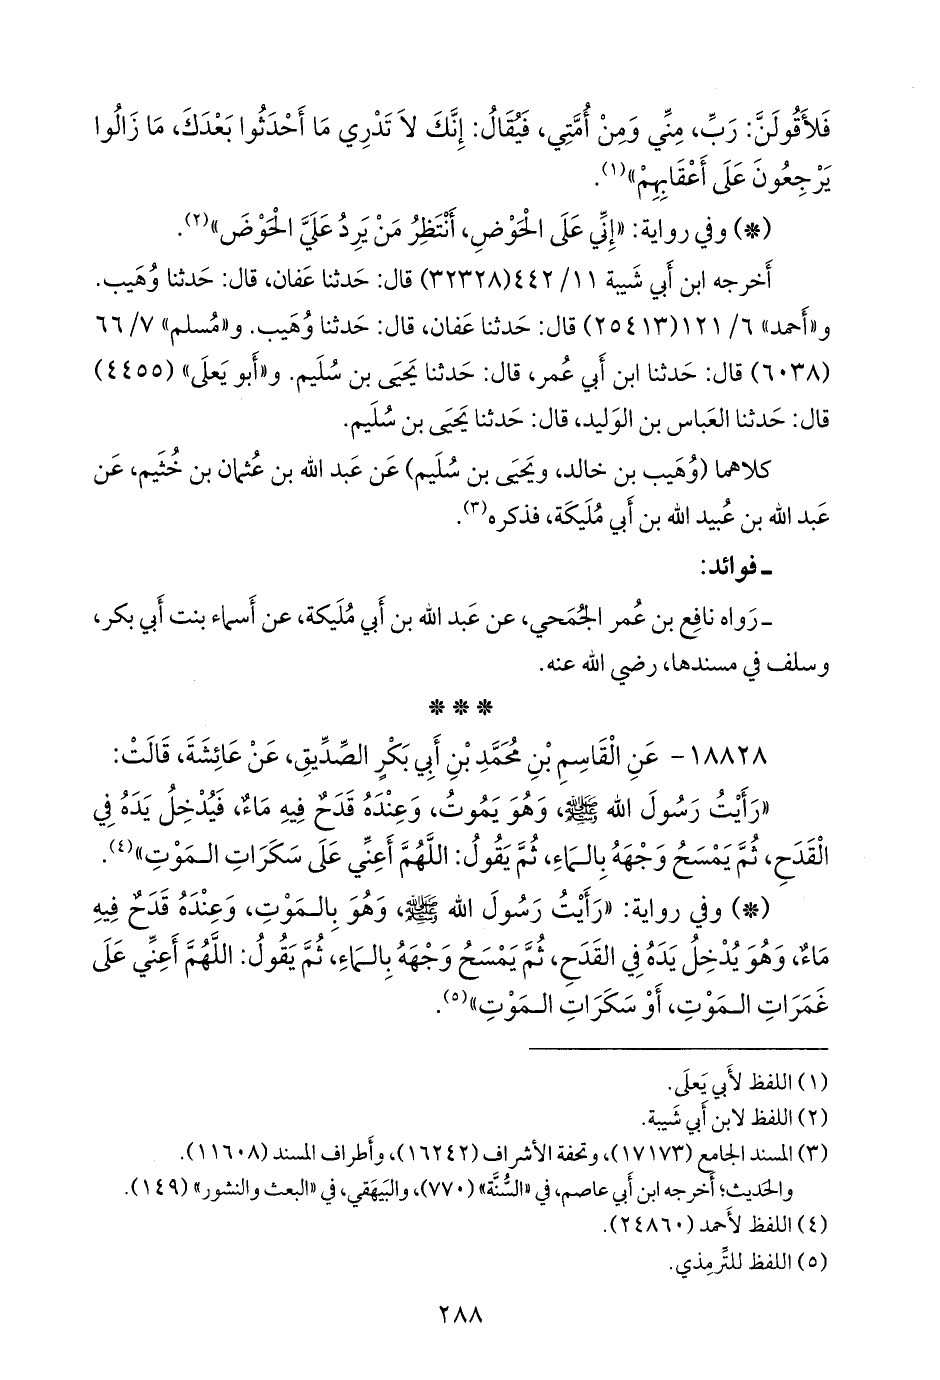 فَلأَقُولَنَّ: رَبِّ، مِنِّي وَمِنْ أُمَّتِي، فَيُقَالُ: إِنَّكَ لاَ تَدْرِي مَا أَحْدَثُوا بَعْدَكَ، مَا زَالُوا
يَرْجِعُونَ عَلَى أَعْقَابِهِمْ»(١).
(*) وفي رواية: «إِنِّي عَلَى الْحَوْضِ، أَنْتَظِرُ مَنْ يَرِدُ عَلَيَّ الْحَوْضَ»(٢).
أَخرجه ابن أَبي شَيبة ١١/ ٤٤٢(٣٢٣٢٨) قال: حَدثنا عَفان، قال: حَدثنا وُهَيب.
و«أَحمد» ٦/ ١٢١(٢٥٤١٣) قال: حَدثنا عَفان، قال: حَدثنا وُهَيب. و«مُسلم» ٧/ ٦٦
(٦٠٣٨) قال: حَدثنا ابن أَبي عُمر، قال: حَدثنا يَحيَى بن سُليم. و«أَبو يَعلَى» (٤٤٥٥)
قال: حَدثنا العَباس بن الوَليد، قال: حَدثنا يَحيَى بن سُليم.
كلاهما (وُهَيب بن خالد، ويَحيَى بن سُليم) عَن عَبد الله بن عُثمان بن خُثيم، عَن
عَبد الله بن عُبيد الله بن أَبي مُلَيكَة، فذكره(٣).
ـ فوائد:
ـ رَواه نافِع بن عُمر الجُمَحي، عن عَبد الله بن أَبي مُلَيكة، عن أَسماء بنت أَبي بكر،
وسلف في مسندها، رضي الله عنه.
* * *
١٨٨٢٨- عَنِ الْقَاسِمِ بْنِ مُحَمَّدِ بْنِ أَبِي بَكْرٍ الصِّدِّيقِ، عَنْ عَائِشَةَ، قَالَتْ:
«رَأَيْتُ رَسُولَ الله ﷺ، وَهُوَ يَمُوتُ، وَعِنْدَهُ قَدَحٌ فِيهِ مَاءٌ، فَيُدْخِلُ يَدَهُ فِي
الْقَدَحِ، ثُمَّ يَمْسَحُ وَجْهَهُ بِالـمَاءِ، ثُمَّ يَقُولُ: اللَّهُمَّ أَعِنِّي عَلَى سَكَرَاتِ الـمَوْتِ»(٤).
(*) وفي رواية: «رَأَيْتُ رَسُولَ الله ﷺ، وَهُوَ بِالـمَوْتِ، وَعِنْدَهُ قَدَحٌ فِيهِ
مَاءٌ، وَهُوَ يُدْخِلُ يَدَهُ فِي القَدَحِ، ثُمَّ يَمْسَحُ وَجْهَهُ بِالـمَاءِ، ثُمَّ يَقُولُ: اللَّهُمَّ أَعِنِّي عَلَى
غَمَرَاتِ الـمَوْتِ، أَوْ سَكَرَاتِ الـمَوْتِ»(٥).
(١) اللفظ لأَبي يَعلَى.
(٢) اللفظ لابن أَبي شَيبة.
(٣) المسند الجامع (١٧١٧٣)، وتحفة الأشراف (١٦٢٤٢)، وأَطراف المسند (١١٦٠٨).
والحَديث؛ أَخرجه ابن أَبي عاصم، في «السُّنَّة» (٧٧٠)، والبَيهَقي، في «البعث والنشور» (١٤٩).
(٤) اللفظ لأَحمد (٢٤٨٦٠).
(٥) اللفظ للتِّرمِذي.
٢٨٨